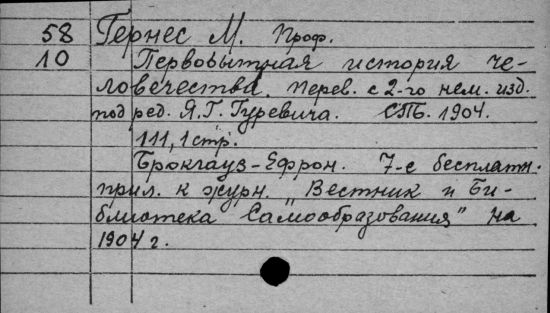 58 Гернес М. Проф.
10 Первобытная история че-
ловечества. Перев. с 2-го нем. изд.
под ред. Я.Г. Гуревича. СПБ. 1904.
111, 1 стр.
Брокгауз-Ефрон. 7-е бесплатн.
прил. к журн. „Вестник и Би-
блиотека Самообразования" на
1904 г.